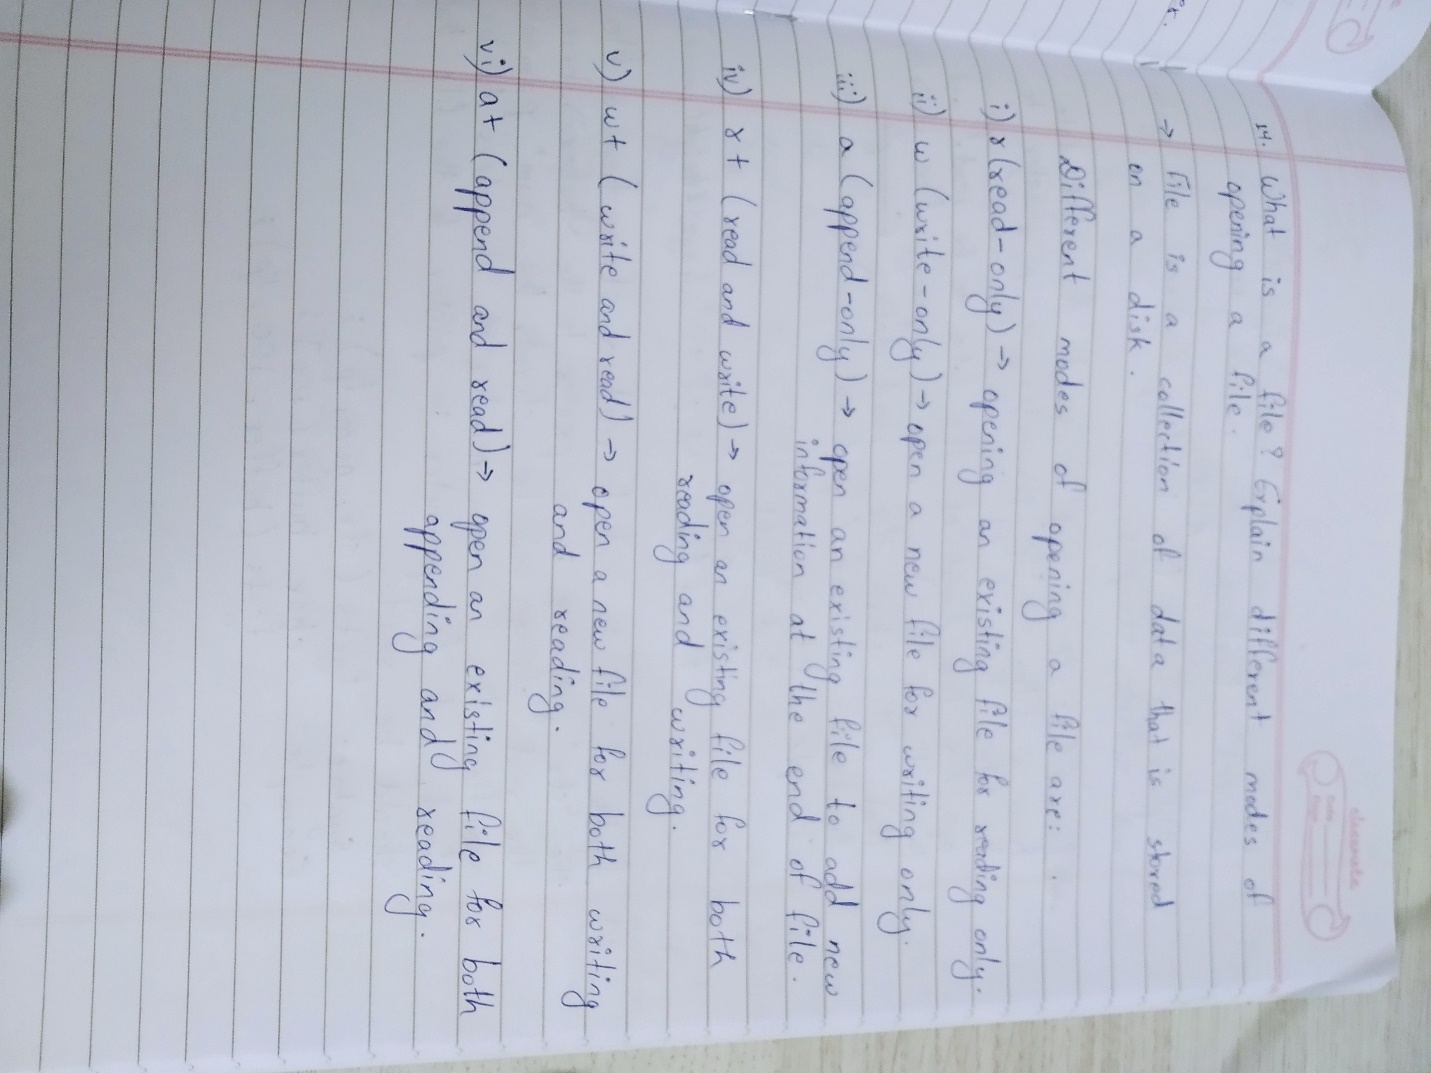 14. What is a file? Explain different modes of
opening a file.
→ File is a collection of data that is stored
on a disk.
Different modes of opening a file are:
i) r (read-only) → opening an existing file for reading only.
ii) w (write-only) → open a new file for writing only.
iii) a (append-only) → open an existing file to add new
information at the end of file.
iv) r+ (read and write) → open an existing file for both
reading and writing.
v) w+ (write and read) → open a new file for both writing
and reading.
vi) a+ (append and read) → open an existing file for both
appending and reading.